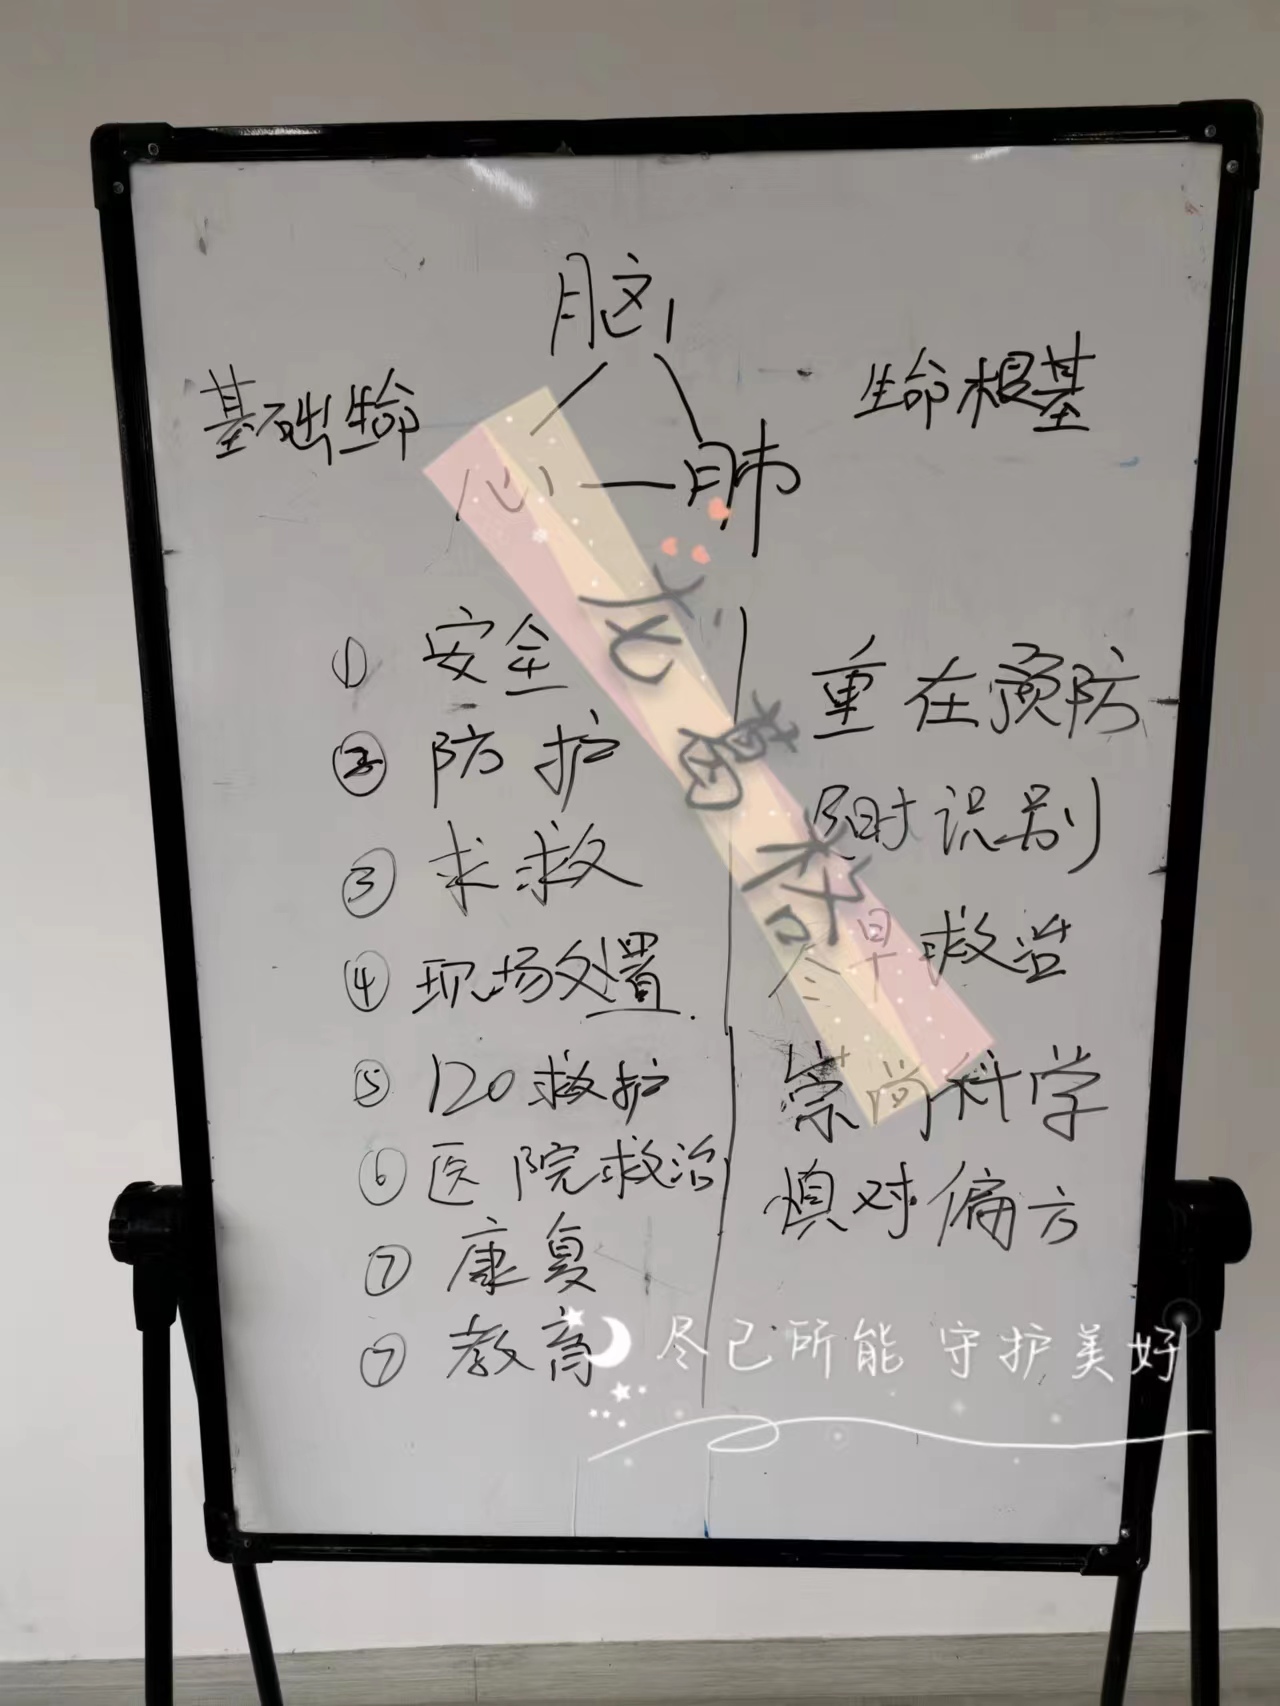 脑
基础生命
生命根基
心 — 肺
① 安全
② 防护
③ 求救
④ 现场处置
⑤ 120救护
⑥ 医院救治
⑦ 康复
⑦ 教育
重在预防
及时识别
尽早救治
崇尚科学
慎对偏方
尽己所能 守护美好